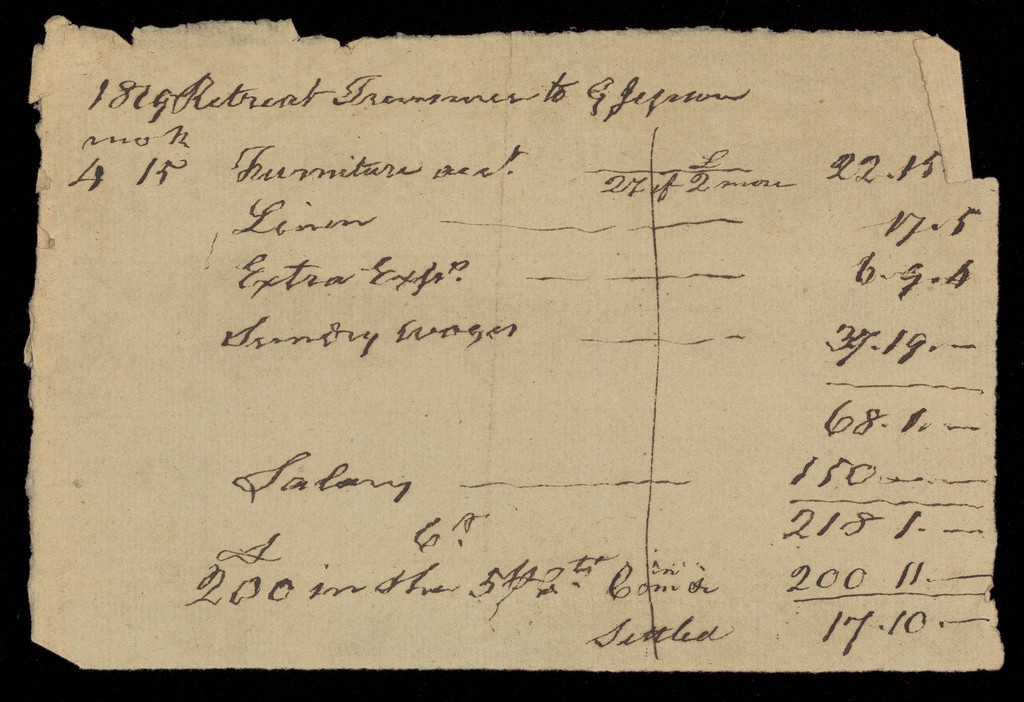 1819 Retreat Treasurer to G Jepson
mo k
4 15 Furniture acct. 27 if £2 more 22.15
Linen 17.5
Extra Exps. 6.9.4
Sundry wages 37.19.—
68.1.—
Salary 150 —
218 1.—
Cr.
£200 in the 200 11.—
Settled 17.10.—